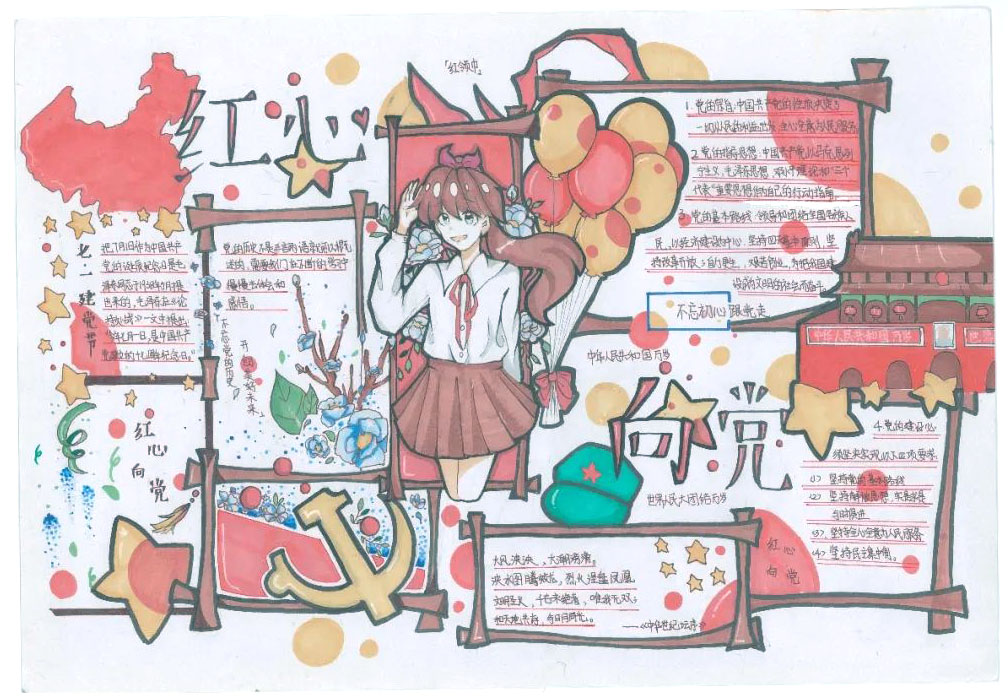 红心
「红领巾」
七一建党节
把7月1日作为中国共产
党的诞辰纪念日最早
来的，毛泽东在《论
持久战》一文中提出：
"今年七月一日，是中国共产
党建立的十七周年纪念日。"
红心
向党
党的历史不是三言两语就可以概无
述的，需要我们在不断的学习
慢慢体会和
感悟。
不忘党的历史
开创美好未来
1.党的宗旨:中国共产党的
一切从人民的利益出发，全心全意为人民服务
2.党的指导思想：中国共产党以马克思列
宁主义、毛泽东思想、邓小平理论和"三个
代表"重要思想作为自己的行动指南。
3.党的基本路线：领导和团结全国各族人
民，以经济建设为中心，坚持四项基本原则，坚
持改革开放，自力更生，艰苦创业，为把我国建
设成为
不忘初心跟党走
中华人民共和国万岁
中华人民共和国万岁
向党
世界人民大团结万岁
4.党的建设必
须坚决实现以下四项要求
(1) 坚持党的基本路线
(2) 坚持解放思想，实事求是
与时俱进
(3) 坚持全心全意为人民服务
(4) 坚持民主集中制。
红心
向党
大风泱泱，大潮滂滂。
洪水图腾蛟龙，烈火涅槃凤凰
文明圣火，千古未绝者，唯我无双；
和天地并存，与日月同光。
——《中华世纪坛序》